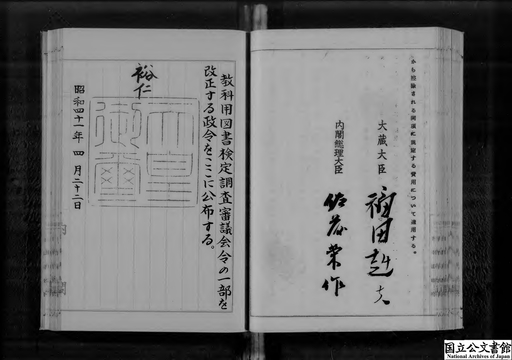 から される に する費用について適用する。
大蔵大臣 福田赳夫
内閣総理大臣 佐藤栄作
教科用図書検定調査審議会令の一部を
改正する政令をここに公布する。
裕仁
天皇
御璽
昭和四十一年 四 月二十二日
国立公文書館
National Archives of Japan